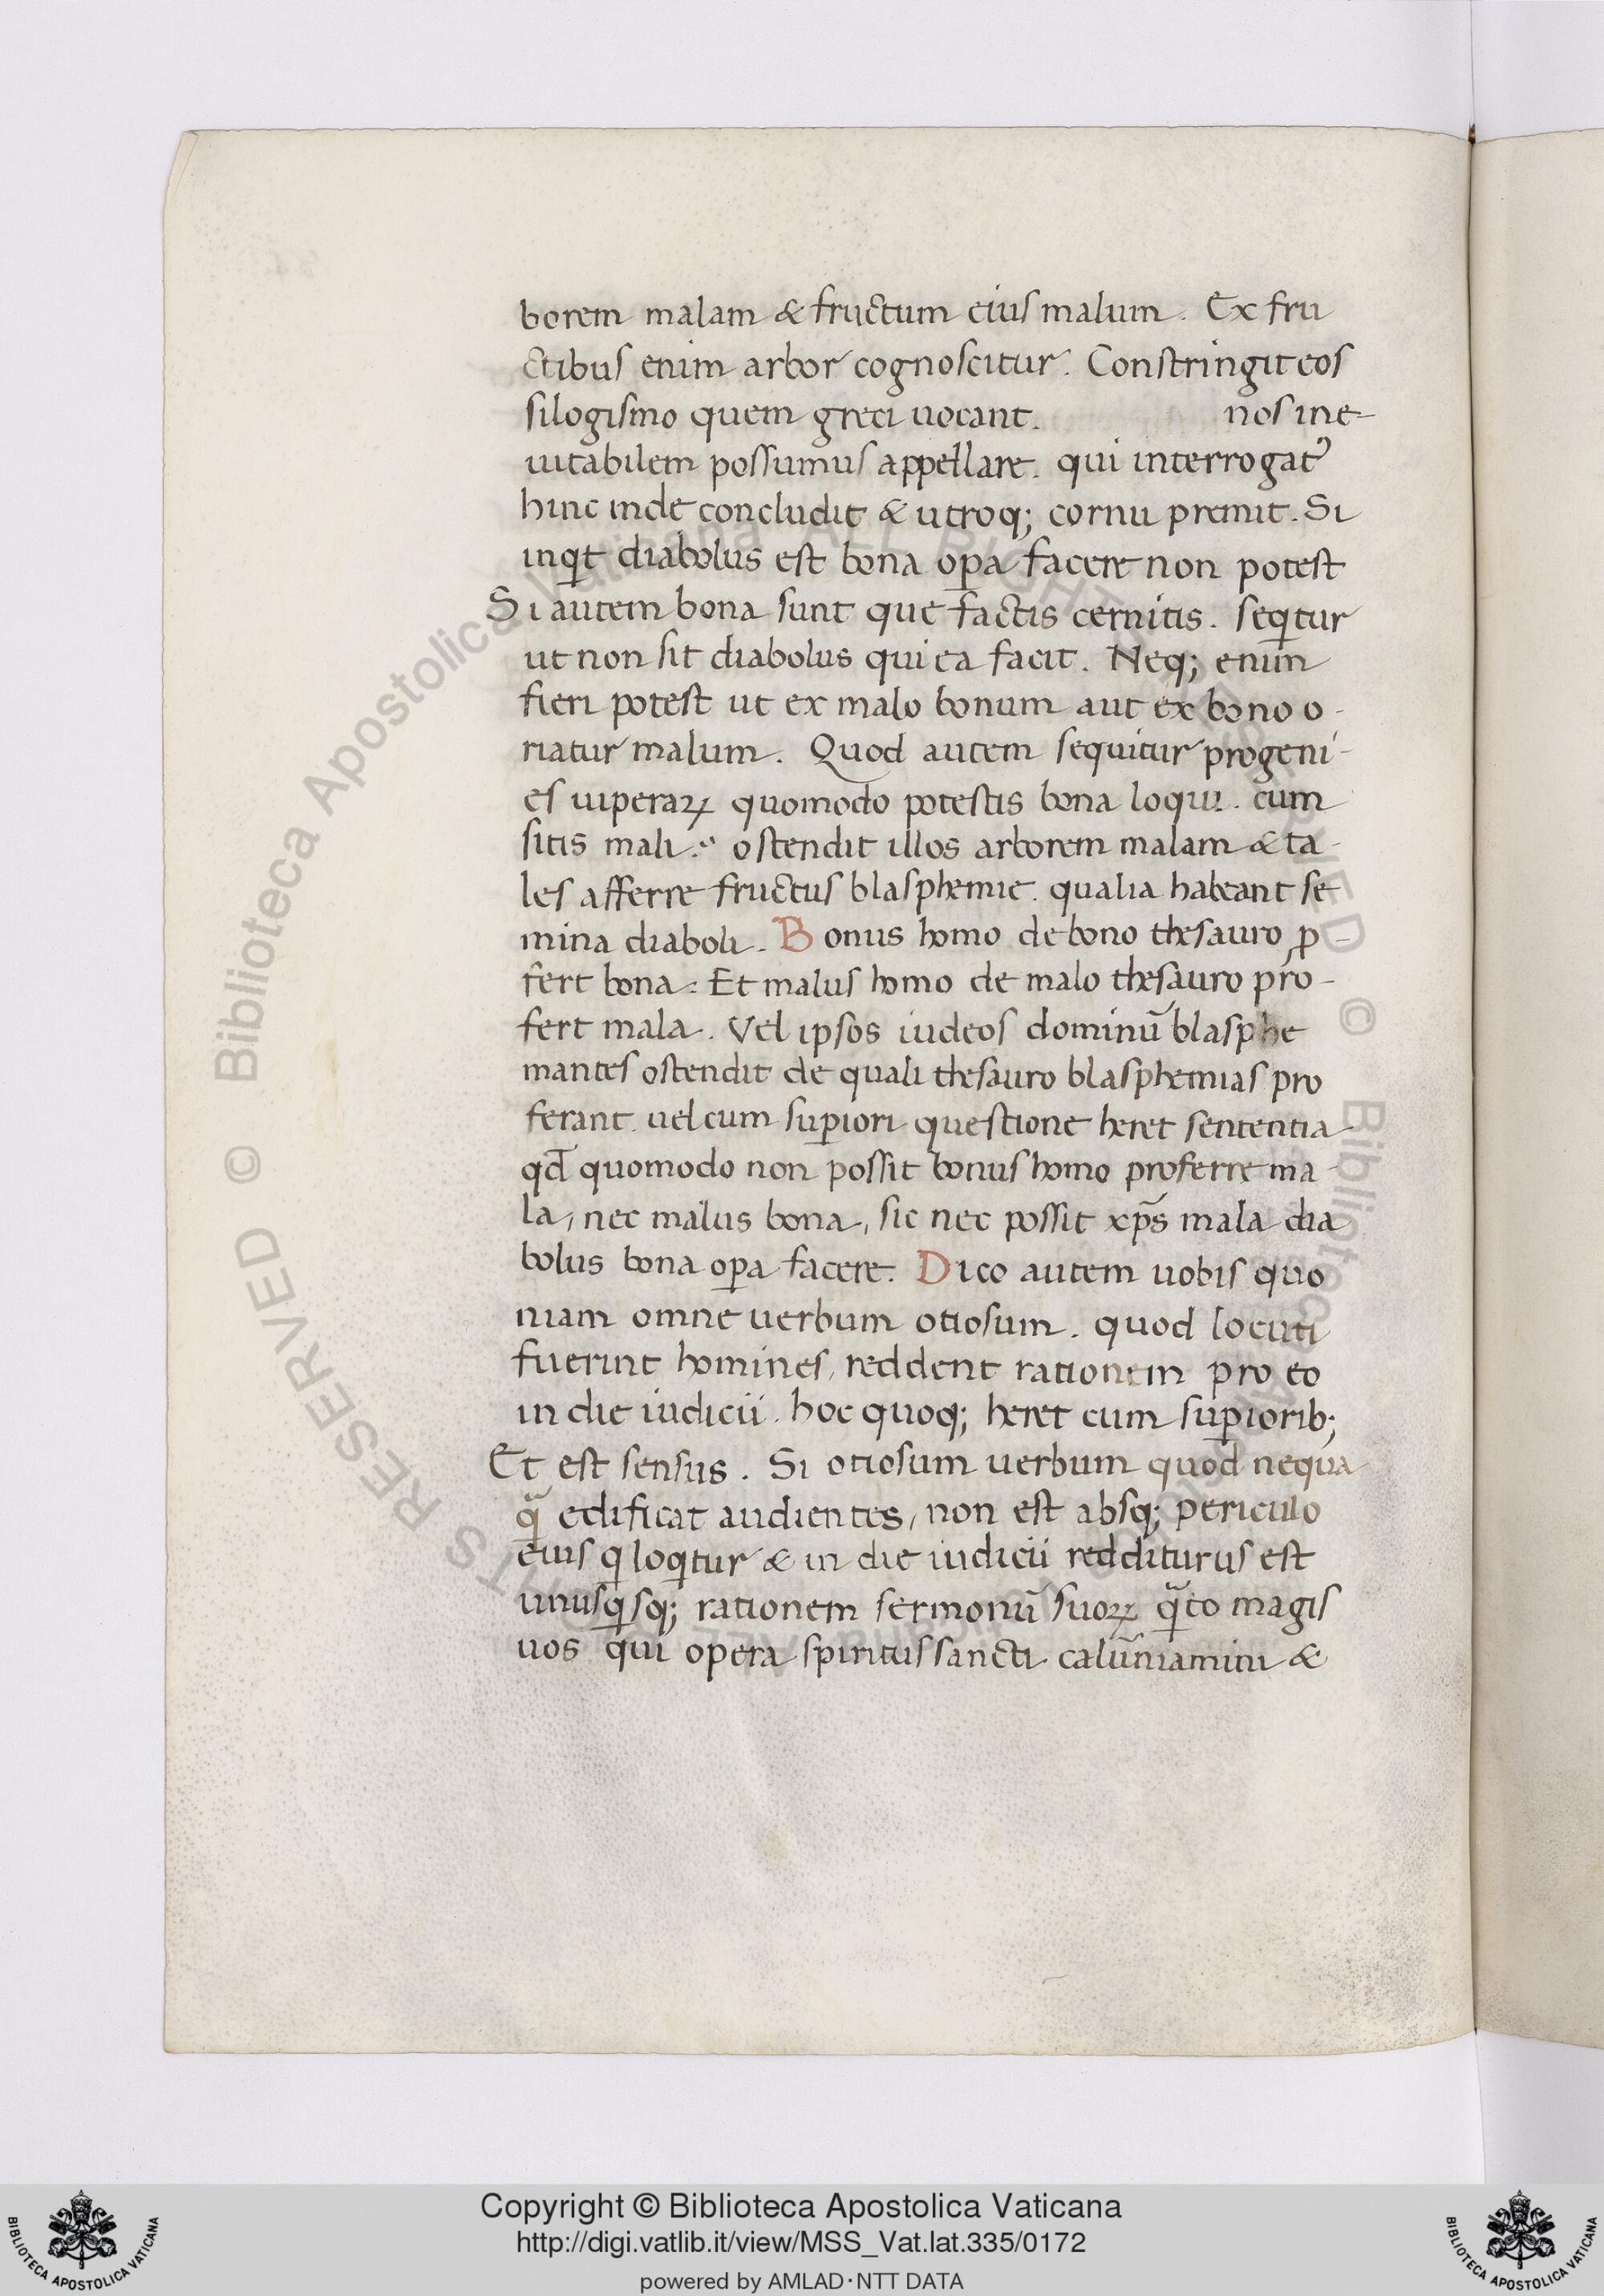 borem malam & fructum eius malum. Ex fru
ctibus enim arbor cognoscitur. Constringit eos
silogismo quem greci uocant. nos ine-
uitabilem possumus appellare. qui interrogatꝰ
hinc inde concludit & utroq; cornu premit. Si
inqͥt diabolus est bona oꝑa facere non potest
Si autem bona sunt que factis cernitis. seqͥtur
ut non sit diabolus qui ea facit. Neq; enim
fieri potest ut ex malo bonum aut ex bono o-
riatur malum. Quod autem sequitur progeni-
es uiperaꝝ quomodo potestis bona loqui. cum
sitis mali. ostendit illos arborem malam & ta-
les afferre fructus blasphemie. qualia habeant se
mina diaboli. Bonus homo de bono thesauro ꝓ-
fert bona. Et malus homo de malo thesauro pro-
fert mala. Vel ipsos iudeos dominū blasphe
mantes ostendit de quali thesauro blasphemias pro
ferant. uel cum suꝑiori questione heret sententia
qd̄ quomodo non possit bonus homo proferre ma-
la, nec malus bona, sic nec possit xp̄s mala dia
bolus bona oꝑa facere. Dico autem uobis quo
niam omne uerbum otiosum. quod locuti
fuerint homines, reddent rationem pro eo
in die iudicii. hoc quoq; heret cum suꝑiorib;
Et est sensus. Si otiosum uerbum quod nequa
qᷓ edificat audientes, non est absq; periculo
eius qͥ loqͥtur & in die iudicii redditurus est
unusqͥsq; rationem sermonū suoꝝ qᷓto magis
uos qui opera spiritus sancti calūniamini &
Copyright © Biblioteca Apostolica Vaticana
http://digi.vatlib.it/view/MSS_Vat.lat.335/0172
powered by AMLAD·NTT DATA
BIBLIOTECA APOSTOLICA VATICANA
BIBLIOTECA APOSTOLICA VATICANA